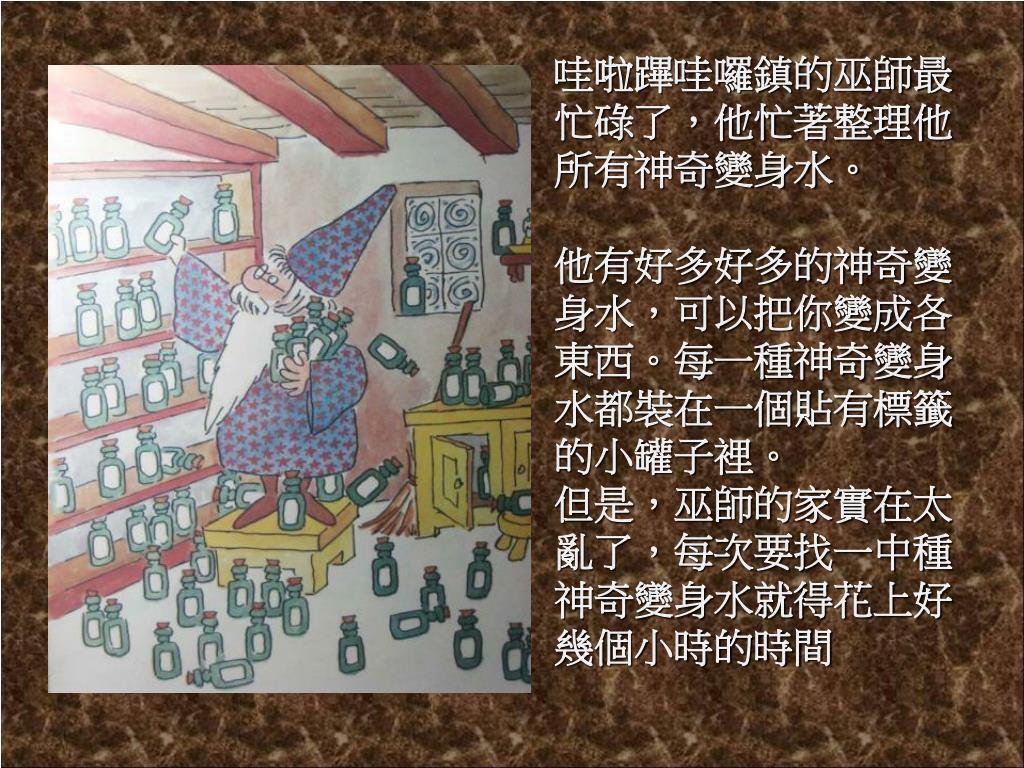 哇啦蹕哇囉鎮的巫師最
忙碌了，他忙著整理他
所有神奇變身水。
他有好多好多的神奇變
身水，可以把你變成各
東西。每一種神奇變身
水都裝在一個貼有標籤
的小罐子裡。
但是，巫師的家實在太
亂了，每次要找一中種
神奇變身水就得花上好
幾個小時的時間